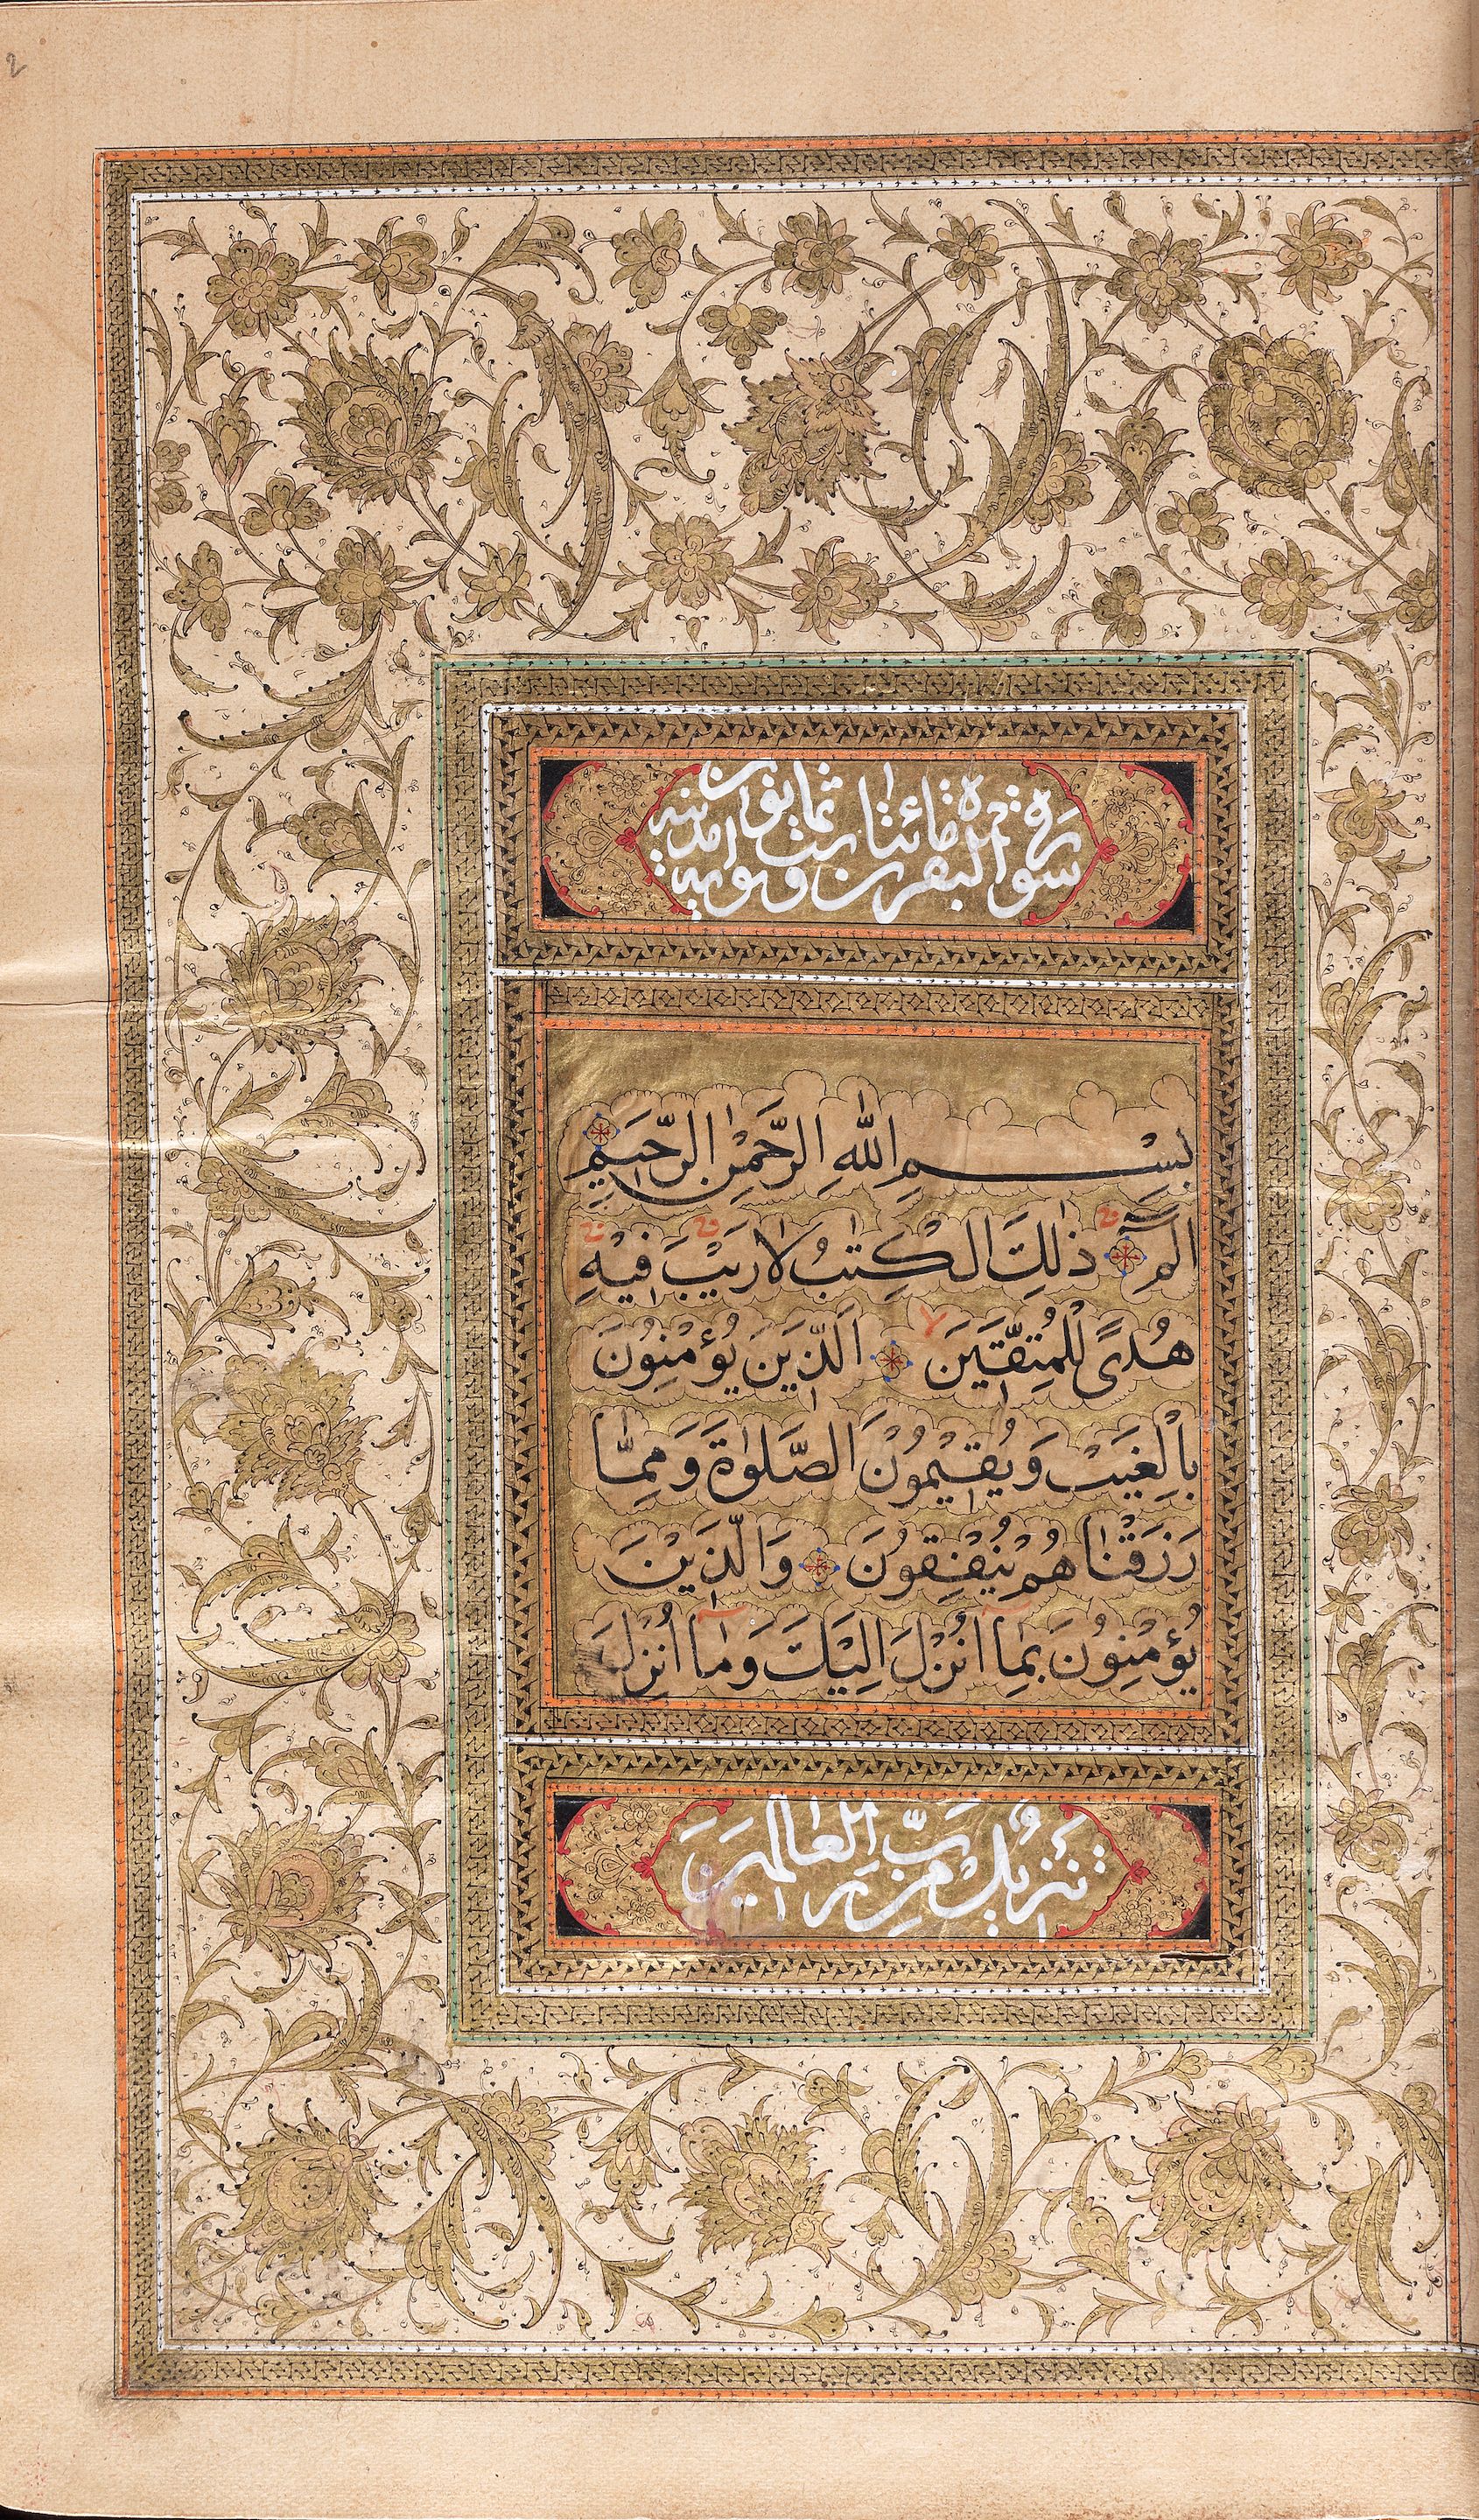 سورة البقرة مائتان وست وثمانون اية مدنية
بِسْمِ اللّٰهِ الرَّحْمٰنِ الرَّحِيْمِ
الٓمّٓ ذٰلِكَ الْكِتٰبُ لَا رَيْبَ فِيْهِ
هُدًى لِّلْمُتَّقِيْنَ الَّذِيْنَ يُؤْمِنُوْنَ
بِالْغَيْبِ وَيُقِيْمُوْنَ الصَّلٰوةَ وَمِمَّا
رَزَقْنَاهُمْ يُنْفِقُوْنَ وَالَّذِيْنَ
يُؤْمِنُوْنَ بِمَا اُنْزِلَ اِلَيْكَ وَمَا اُنْزِلَ
تَنْزِيْلٌ مِنْ رَبِّ الْعَالَمِيْنَ
2